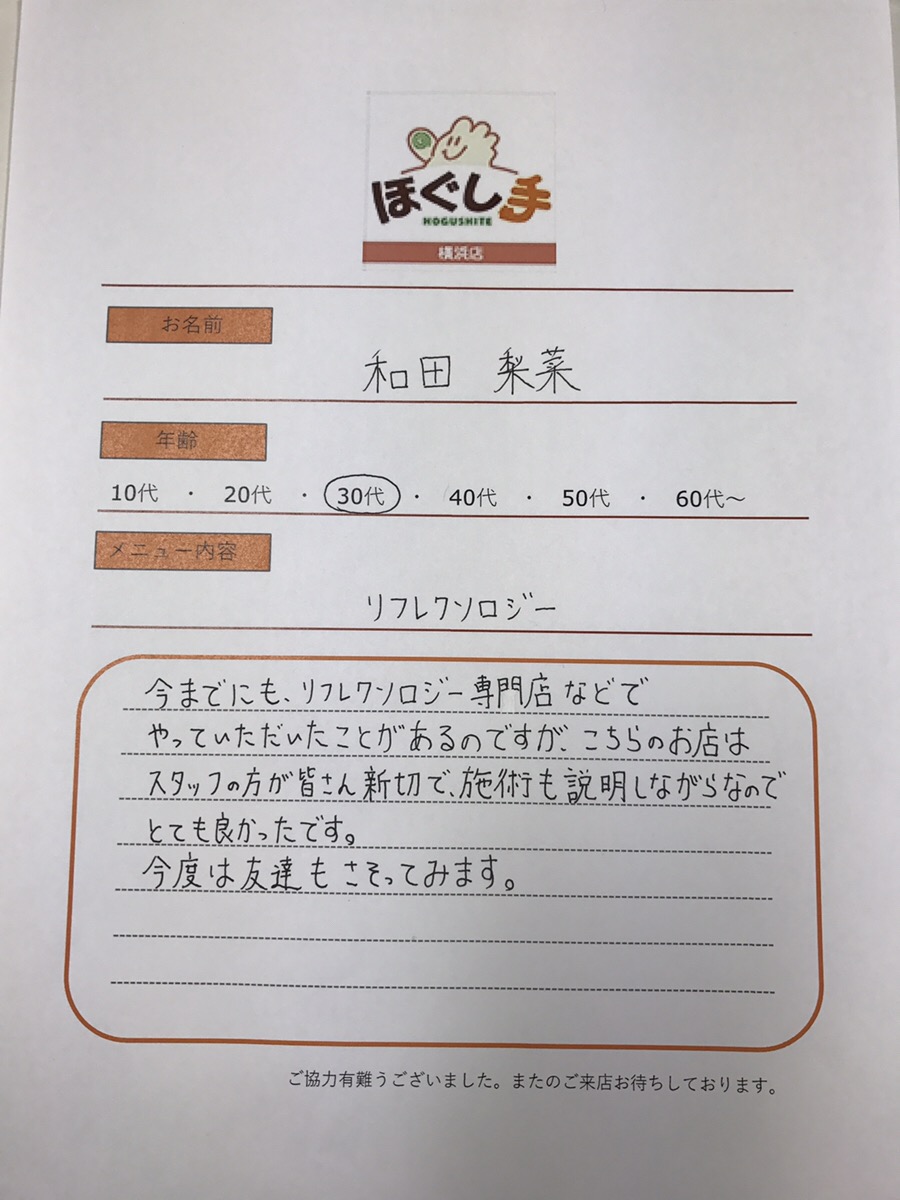 ほぐし手
HOGUSHITE
横浜店
お名前
和田 梨菜
年齢
10代 ・ 20代 ・ 30代 ・ 40代 ・ 50代 ・ 60代～
メニュー内容
リフレクソロジー
今までにも、リフレクソロジー専門店などで
やっていただいたことがあるのですが、こちらのお店は
スタッフの方が皆さん新切で、施術も説明しながらなので
とても良かったです。
今度は友達もさそってみます。
ご協力有難うございました。またのご来店お待ちしております。